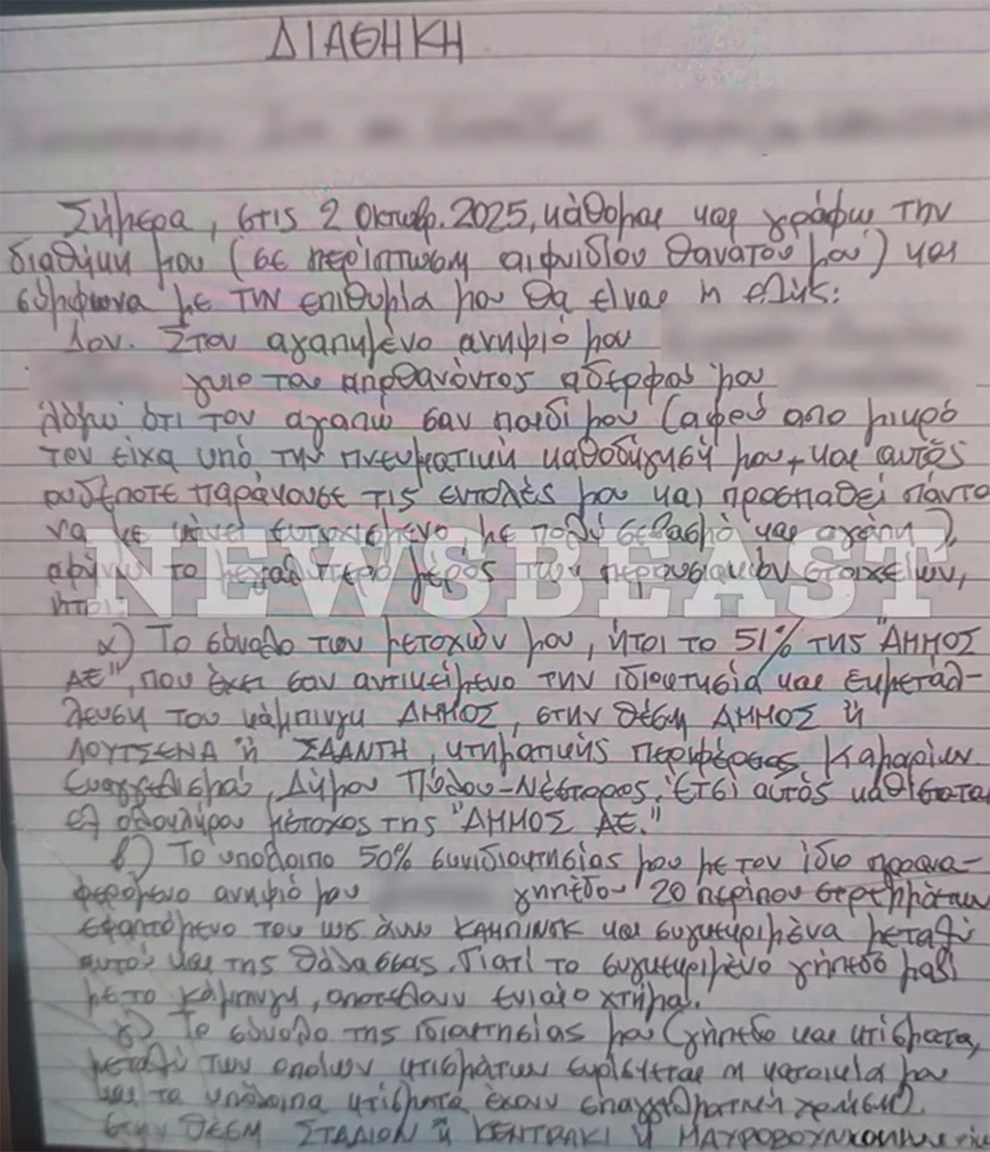 ΔΙΑΘΗΚΗ
Σήμερα, στις 2 Οκτωβρ. 2025, κάθομαι και γράφω την
διαθήκη μου (σε περίπτωση αιφνιδίου θανάτου μου) και
σύμφωνα με την επιθυμία μου θα είναι η εξής:
1ον. Στον αγαπημένο ανηψιό μου
γυιο του αποθανόντος αδερφού μου
λόγω ότι τον αγαπώ σαν παιδί μου (αφού απο μικρό
τον είχα υπό την πνευματική καθοδήγησή μου, και αυτός
ουδέποτε παράκουσε τις εντολές μου και προσπαθεί πάντα
να με κάνει ευτυχισμένο, με πολύ σεβασμό και αγάπη),
αφήνω το μεγαλύτερο μέρος των περιουσιακών στοιχείων,
ήτοι:
NEWSBEAST
α) Το σύνολο των μετοχών μου, ήτοι το 51% της "ΑΜΜΟΣ
ΑΕ", που έχει σαν αντικείμενο την ιδιοκτησία και εκμετάλ-
λευση του κάμπινγκ ΑΜΜΟΣ, στην θέση ΑΜΜΟΣ ή
ΛΟΥΤΣΕΝΑ ή ΣΑΑΝΤΗ, κτηματικής περιφέρειας Καμαρίων
Ευαγγελισμού, Δήμου Πύλου-Νέστορος. Έτσι αυτός καθίσταται
εξ ολοκλήρου μέτοχος της "ΑΜΜΟΣ ΑΕ."
β) Το υπόλοιπο 50% συνιδιοκτησίας μου με τον ίδιο προανα-
φερόμενο ανηψιό μου γηπέδου 20 περίπου στρεμμάτων
εφαπτόμενο του ως άνω ΚΑΜΠΙΝΓΚ και συγκεκριμένα μεταξύ
αυτού και της θάλασσας. Γιατί το συγκεκριμένο γήπεδο μαζί
με το κάμπινγκ, αποτελούν ενιαίο κτήμα.
γ) Το σύνολο της ιδιοκτησίας μου (γήπεδο και κτίσματα,
μεταξύ των οποίων κτισμάτων ευρίσκεται η κατοικία μου
και τα υπόλοιπα κτίσματα έχουν επαγγελματική χρήση).
στην θέση ΣΤΑΔΙΟΝ ή ΚΕΝΤΡΑΚΙ ή